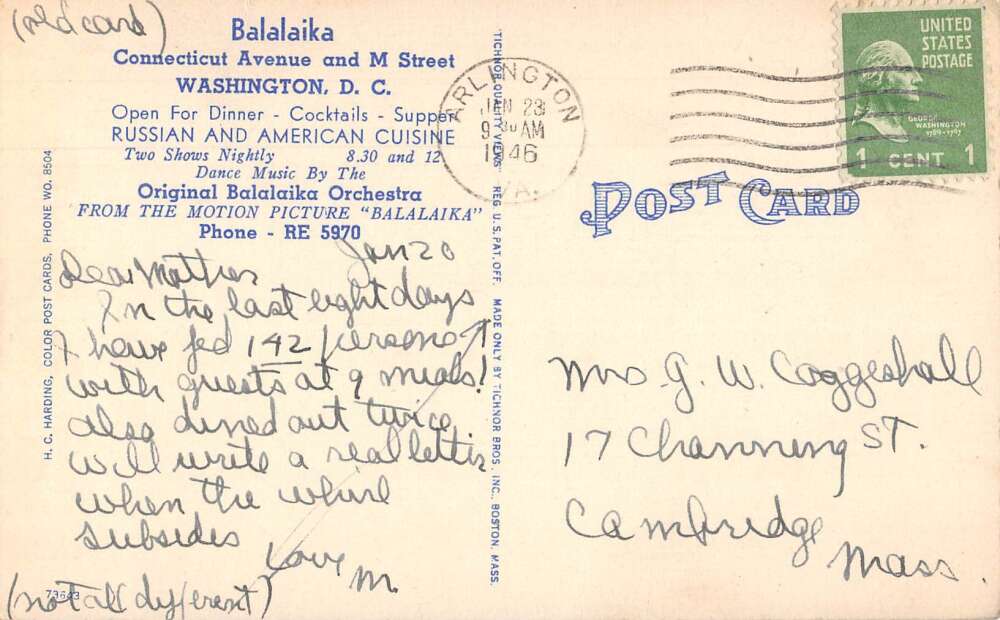 (old card)
Balalaika
Connecticut Avenue and M Street
WASHINGTON, D. C.
Open For Dinner - Cocktails - Supper
RUSSIAN AND AMERICAN CUISINE
Two Shows Nightly 8.30 and 12
Dance Music By The
Original Balalaika Orchestra
FROM THE MOTION PICTURE "BALALAIKA"
Phone - RE 5970
Jan 20
Dear Mother
In the last eight days
I have fed 142 persons
with guests at 9 meals!
also dined out twice
will write a real letter
when the whirl
subsides
Love
M.
(not all different)
73643
H. C. HARDING, COLOR POST CARDS, PHONE WO. 8504
TICHNOR QUALITY VIEWS REG. U. S. PAT. OFF. MADE ONLY BY TICHNOR BROS. INC., BOSTON, MASS.
ARLINGTON
JAN 23
9 30 AM
1946
VA.
UNITED
STATES
POSTAGE
GEORGE
WASHINGTON
1789-1797
1 CENT 1
POST CARD
Mrs. G. W. Coggeshall
17 Channing ST.
Cambridge
Mass.